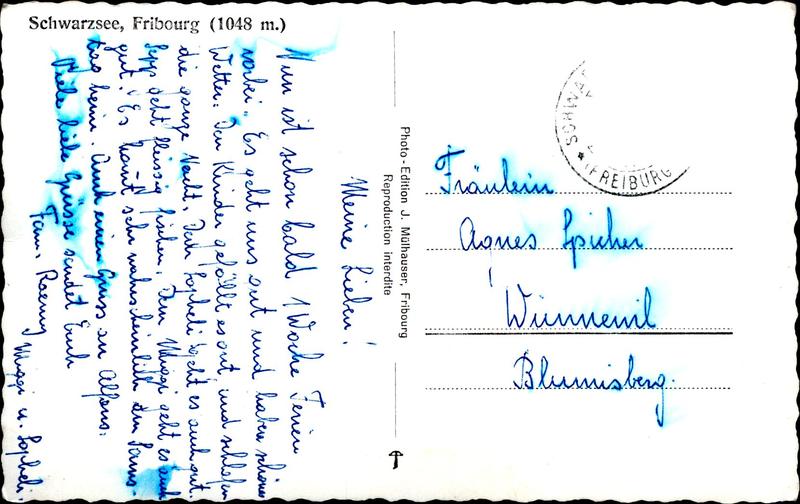 Schwarzsee, Fribourg (1048 m.)
Meine Lieben!
Nun ist schon bald 1 Woche Ferien
vorbei. Es geht uns gut und haben schönes
Wetter. Den Kinder gefällt es gut, und schlafen
die ganze Nacht. Dem Sopheli geht es auch gut.
Sepp geht fleissig fischen. Dem Muggi geht es auch
gut. Es kommt sehr wahrscheinlich am Sams-
tag heim. Auch einen Gruss an Alfons.
Viele liebe Grüsse sendet Euch
Fam. Raemy
Muggi u. Sopheli.
Photo-Edition J. Mülhauser, Fribourg
Reproduction interdite
SCHWAR
(FREIBURG
Fräulein
Agnes Spicher
Wünnewil
Blumisberg.